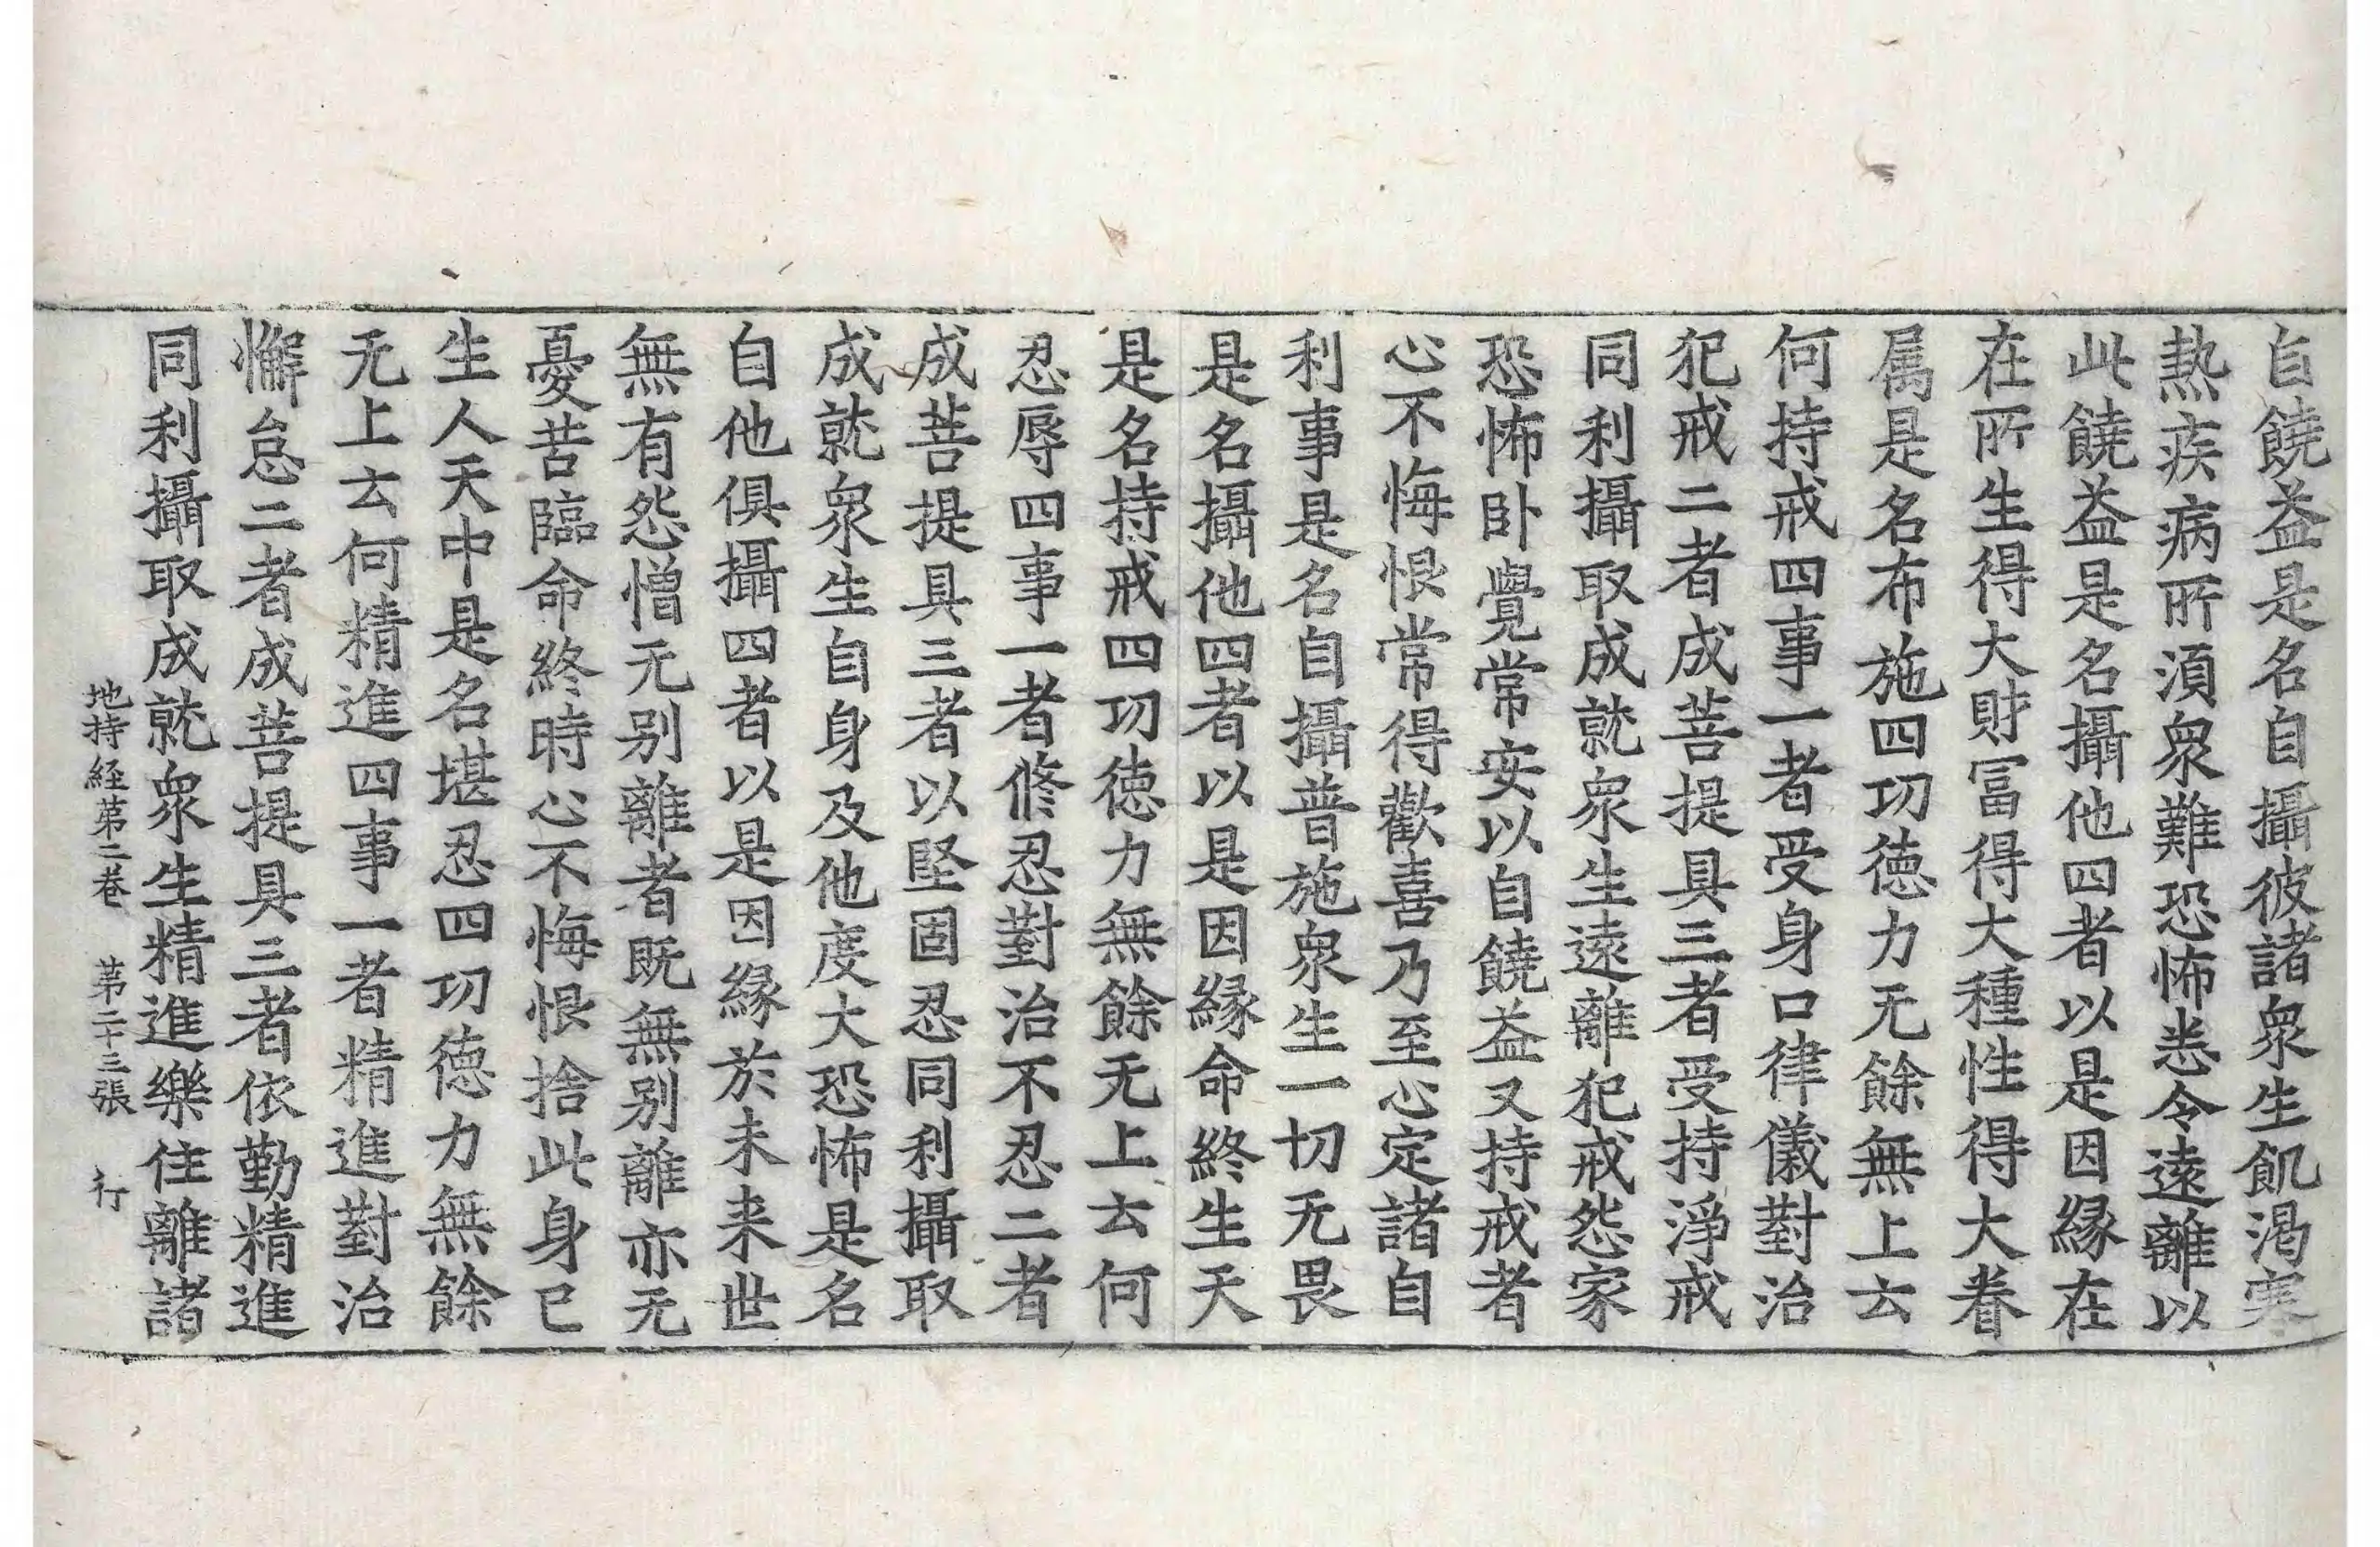 自饒益是名自攝彼諸衆生飢渇寒
熱疾病所湏衆難恐怖悉令遠離以
此饒益是名攝他四者以是因緣在
在所生得大財冨得大種性得大眷
属是名布施四功德力无餘無上云
何持戒四事一者受身口律儀對治
犯戒二者成菩提具三者受持淨戒
同利攝取成就衆生遠離犯戒怨家
恐怖卧覺常安以自饒益又持戒者
心不悔恨常得歡喜乃至心定諸自
利事是名自攝普施衆生一切无畏
是名攝他四者以是因緣命終生天
是名持戒四功德力無餘无上云何
忍辱四事一者修忍對治不忍二者
成菩提具三者以堅固忍同利攝取
成就衆生自身及他度大恐怖是名
自他俱攝四者以是因緣於未来世
無有怨憎无别離者既無别離亦无
憂苦臨命終時心不悔恨捨此身已
生人天中是名堪忍四功德力無餘
无上云何精進四事一者精進對治
懈怠二者成菩提具三者依勤精進
同利攝取成就衆生精進樂住離諸
地持経第二巻 第二十三張 行